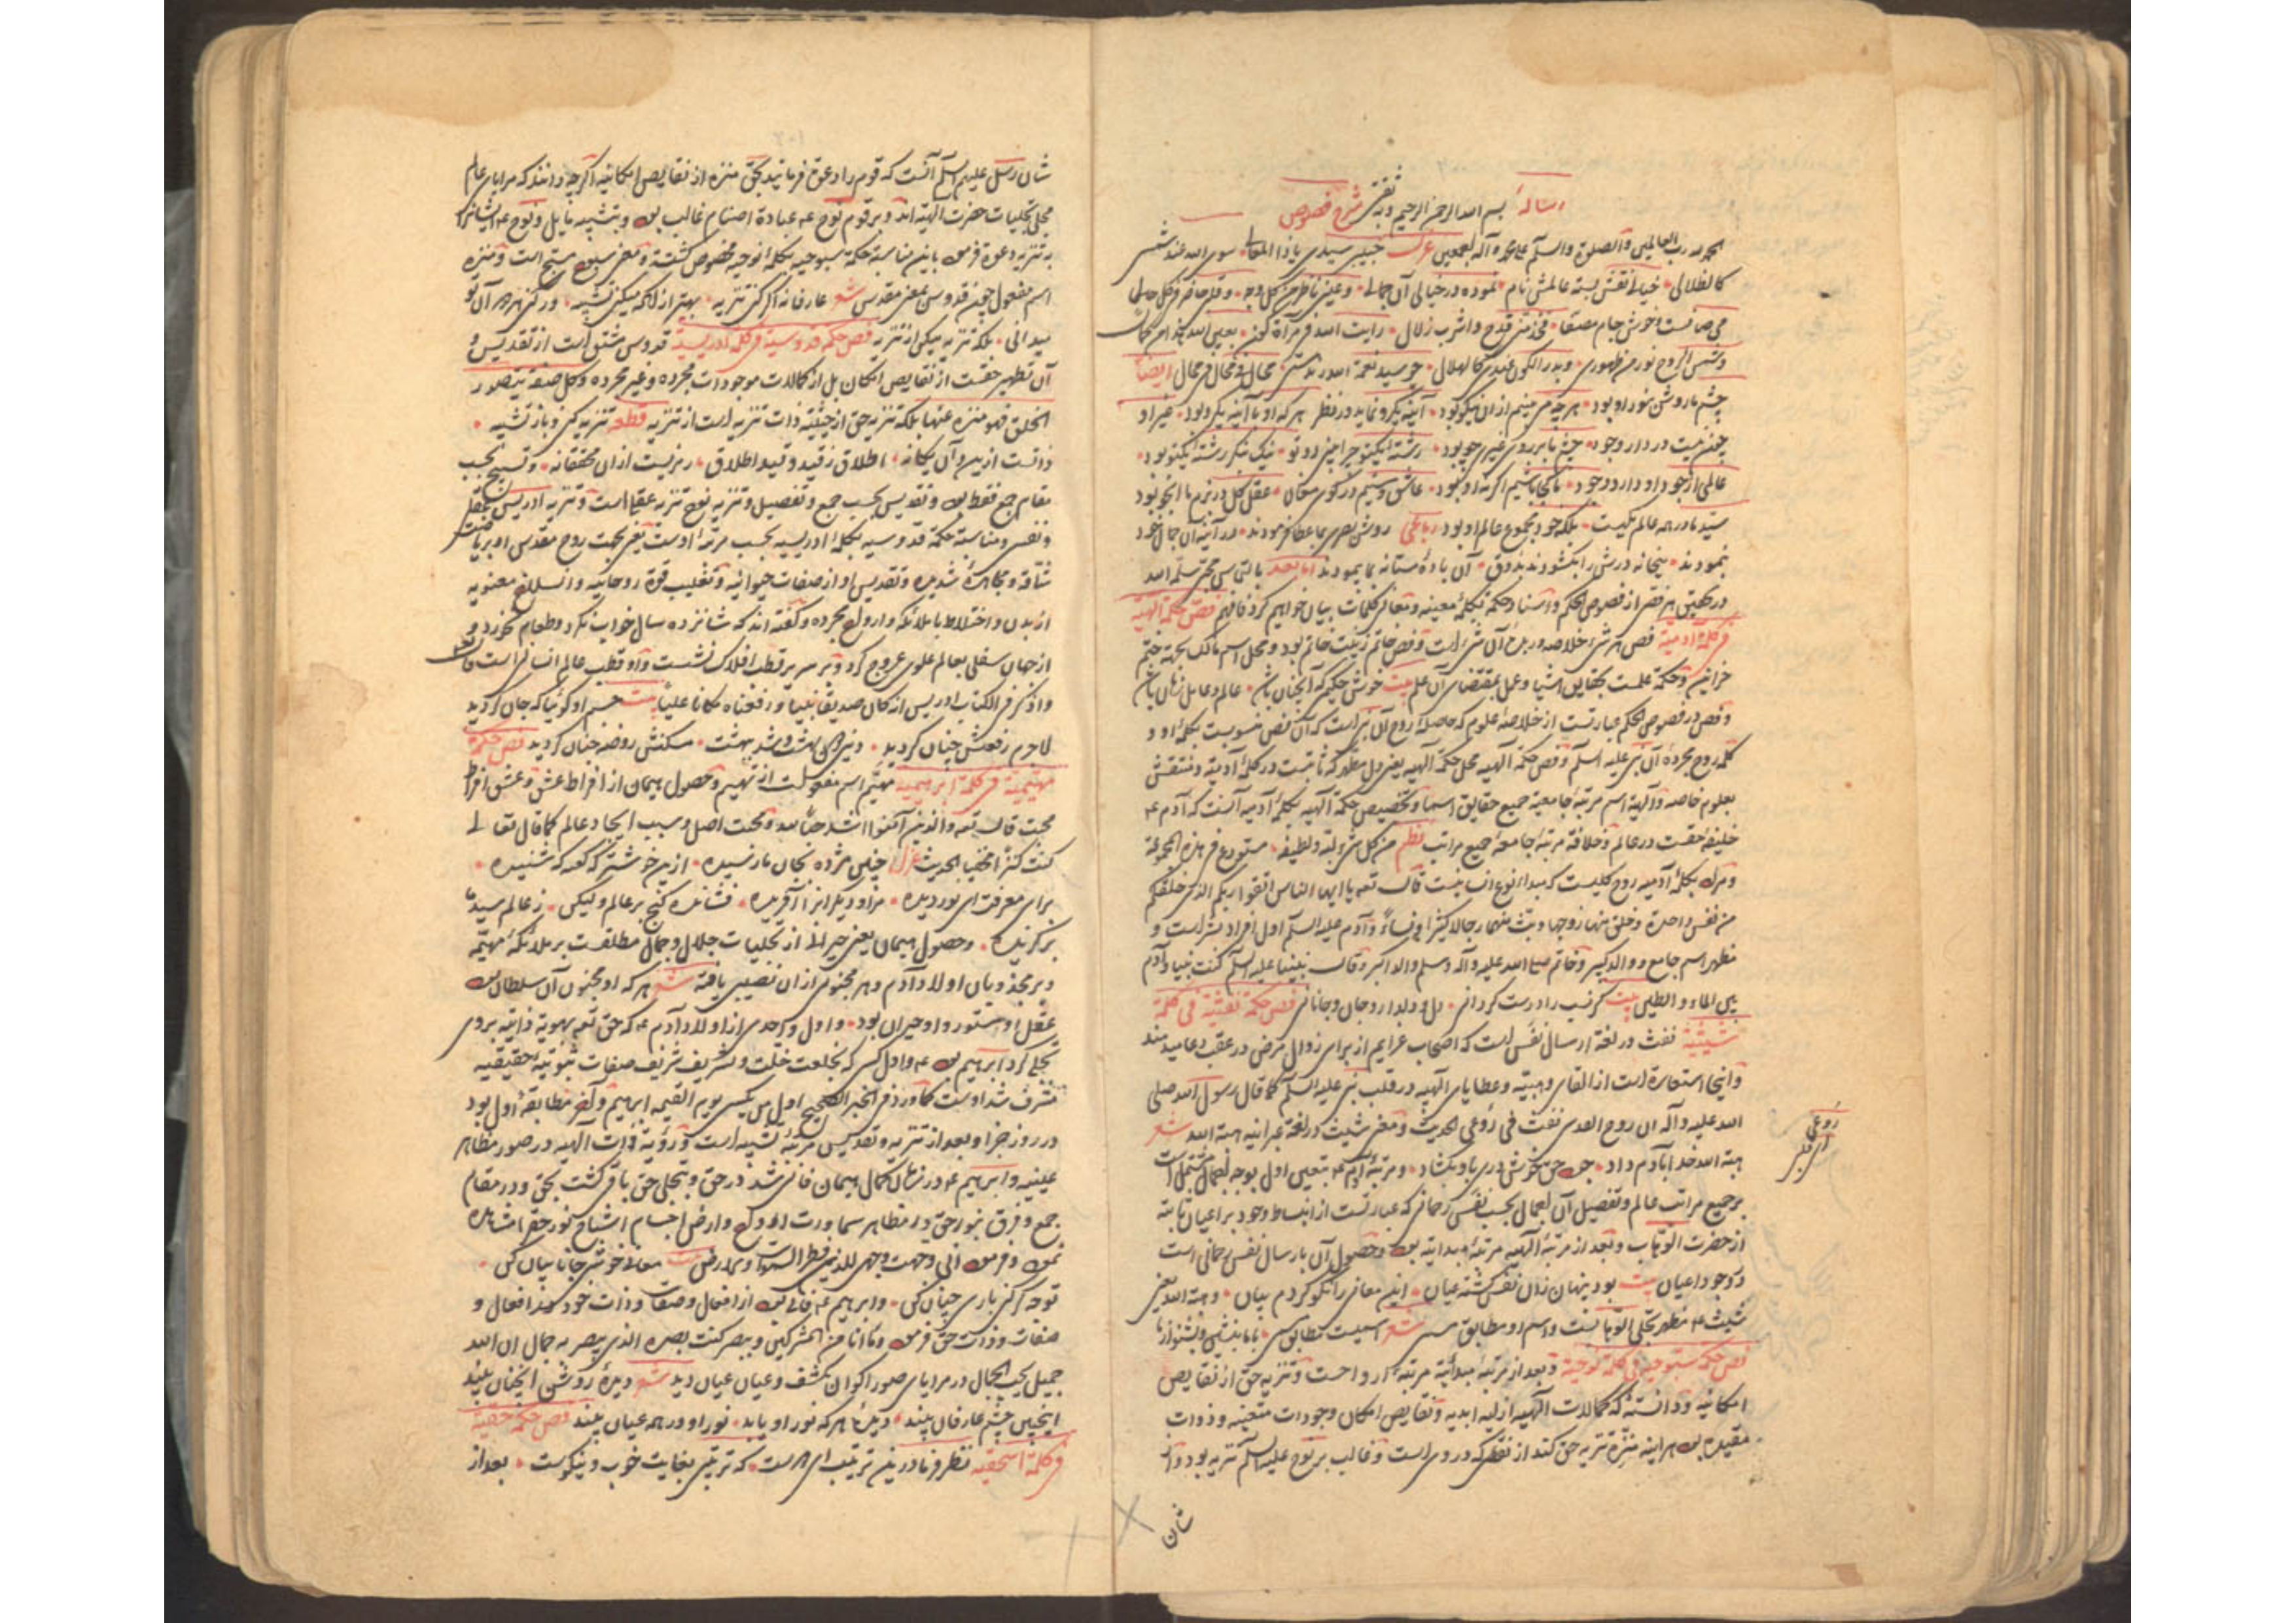 رساله بسم الله الرحمن الرحیم وبه ثقتی شرح فصوص
الحمد لله رب العالمین والصلوة والسلم علی محمد وآله اجمعین غزل حبیبی سیدی یا ذا المعالی سوی الله عند شمس
کالظلال خیالی نقش بسته عالمش نام نموده در خیالی آن جمالی وعینی ناظر من کل وجه وقلبی حاضر فی کل حال
می صافست وخوش جام مصفا فخذ منی قدح واشرب زلال رایت الله فی مرآة کون بعین الله
وشمس الروح نور من ظهوری وبدر الکون عندی کالهلال چو سید نعمة الله رند مستی محال فی محال فی محال ایضا
چشم ما روشن بنور او بود هر چه می بینیم از آن نیکو بود آینه یکرو نماید در نظر هر که او با آینه یکرو بود غیر او
چون نیست در دار وجود رشته یکتو چرا بینی دو تو نیک بنگر رشته یکتو بود
عالمی از جود او دارد وجود ما کجا باشیم اگر نه او بود عاشق ومستیم در کوی مغان عقل کل در بزم ما
سید ما در همه عالم یکیست بلکه خود مجموع عالم او بود رباعی روشن بصری بما عطا فرمودند در آینه آن جمال خود
بنمودند میخانه درش را بگشودند بذوق آن باده مستانه بما پیمودند اما بعد بالتماس محبی سلمه الله
در تحقیق هر فصی از فصوص الحکم واسناد حکمة بکلمه معینه ومعانی کلمات بیان خواهیم کرد فافهم فص حکمة الهیة
فی کلمة آدمیة فص هر شیء خلاصه وزبده آن شیء است وفص خاتم زینت خاتم بود ومحل اسم مالک بجهة ختم
خزاین وحکمة علمست بحقایق اشیا وعمل بمقتضای آن علم بیت خوش حکیمی که آنچنان باش عالم وعامل زمان باش
وفص در فصوص الحکم عبارتست از خلاصه علوم که حاصله روح آن نبی است که آن فص منسوبست بکلمه او و
کلمه روح مجرده آن نبی علیه السلم وفص حکمة الهیه محل حکمة الهیه یعنی دل مطهر که ثابتست در کلمه آدمیة ومنتقش
بعلوم خاصه والهیة اسم مرتبه جامعیه جمیع حقایق اسما وتخصیص حکمة الهیه بکلمه آدمیه آنست که آدم ع
خلیفه حقست در عالم وخلافة مرتبه جامعه جمیع مراتب نظم من کل شیء لبه ولطیفه مستودع فی هذه المجموعة
ومراد بکلمه آدمیه روح کلیست که مبداء نوع انسانیست قال تعه یا ایها الناس اتقوا ربکم الذی خلقکم
من نفس واحدة وخلق منها زوجها وبث منهما رجالا کثیرا ونساء وآدم علیه السلم اول افراد بشر است و
مظهر اسم جامع ووالد کبیر وخاتم صلی الله علیه وآله وسلم والد اکبر وقال نبینا علیه السلم کنت نبیا وآدم
بین الماء والطین بیت گر نسب را درست گردانی دل ودلدار وجان وجانانی فص حکمة نفثیة فی کلمة
شیثیة نفث در لغة ارسال نفس است که اصحاب عزایم از برای زوال مرض در عقب دعا میدمند
واینجا استعاره است از القای وهبیه وعطایای الهیه در قلب نبی علیه السلم کما قال رسول الله صلی
الله علیه وآله ان روح القدس نفث فی روعی الحدیث ومعنی شیث در لغة عبرانیه هبة الله شعر
روعی
ای قلبی
هبة الله خدا بآدم داد ومرتبه آدم ع بتعین اول بوجه اجمال مشتمل است
بر جمیع مراتب عالم وتفصیل آن اجمال بحسب نفس رحمانی که عبارتست از انبساط وجود بر اعیان ثابته
از حضرت الوهاب وبعد از مرتبه الهیه مرتبه مبدائیه بود وحصول آن بارسال نفس رحمانی است
در وجود اعیان بیت بود پنهان زان نفس گشته عیان این معانی را نکو کردم بیان وهبة الله یعنی
شیث ع مظهر تجلی الوهابست واسم او مطابق مسمی شعر اسمیست مطابق مسمی
فص حکمة سبوحیة فی کلمة نوحیة وبعد از مرتبه مبدائیة مرتبه ارواحست وتنزیه حق از نقایص
امکانیه ودانستی که کمالات الهیه ازلیه ابدیه ونقایص امکان وجودات متعینه وذوات
مقیده بود هر اینه منزه تنزیه حق کند از نقصی که در وی است وغالب بر نوح علیه السلم تنزیه بود
شان
شان رسل علیهم السلم آنست که قوم را دعوة فرمایند بحق منزه از نقایص امکانیه اگر چه دانند که مرایای عالم
مجلی تجلیات حضرت الهیه اند وبر قوم نوح ع عبادة اصنام غالب بود وبتشبیه مایل ونوح ع ایشانرا
به تنزیه دعوة فرمود باین مناسبة حکمة سبوحیه بکلمه نوحیه مخصوص گشته ومعنی سبوح مسبح است ومنزه
اسم مفعول چون قدوس بمعنی مقدس شعر عارفانه اگر کنی تنزیه بهتر از آنکه میکنی تشبیه
میدانی بلکه تنزیه میکن از تنزیه فص حکمة قدوسیة فی کلمة ادریسیة قدوس مشتق است از تقدیس و
آن تطهیر حقست از نقایص امکان بل از کمالات موجودات مجرده وغیر مجرده وکل صفة یتصور
الخلق فهو منزه عنها بلکه تنزیه حق از حیثیة ذات تنزیه است از تنزیه قطعه تنزیه کن وباز تشبیه
ذاتست ازین وآن یگانه اطلاق زقید وقید اطلاق رمزیست از آن محققانه وتسبیح بحسب
مقام جمع فقط بود وتقدیس بحسب جمع وتفصیل وتنزیه نوح تنزیه عقلیا است وتنزیه ادریس بعقل
ونفس ومناسبة حکمة قدوسیه بکلمه ادریسیه بحسب مرتبه اوست یعنی بجهت روح مقدس او بریاضت
شاقه ومجاهده شدیده وتقدیس او از صفات حیوانیه وتغلیب قوة روحانیه وانسلاخ معنویه
از بدن واختلاط با ملائکه وارواح مجرده وگفته اند که شانزده سال خواب نکرد وطعام نخورد و
از جهان سفلی بعالم علوی عروج کرد وبر سریر قطب افلاک نشست واو قطب عالم انسانی است
واذکر فی الکتاب ادریس انه کان صدیقا نبیا ورفعناه مکانا علیا بیت جسم او گوئیا که جان گردید
لاجرم رفعتش چنان گردید دنیی بهشت وشد ببهشت مسکنش روضه جنان گردید فص حکمة
مهیمیة فی کلمة ابراهیمیة مهیم اسم مفعولست از تهییم وحصول هیمان از افراط عشق وعشق افراط
محبت قال تعه والذین آمنوا اشد حبا لله ومحبت اصل وسبب ایجاد عالم کما قال تعالی
کنت کنزا مخفیا الحدیث غزل چنین مژده بجان ما رسیده ازین خوشتر که گفته که شنیده
برای معرفت ای نور دیده مرا ودیگرانرا آفریده فشانده گنج بر عالم ولیکن زعالم سید ما
برگزیده وحصول هیمان یعنی حیرانی از تجلیات جلال وجمال مطلقست بر ملائکه مهیمه
وبر مجذوبان اولاد آدم وهر مجنونی از آن نصیبی یافته شعر هر که او مجنون آن سلطان بود
عقل او مستور واو حیران بود واول واحدی از اولاد آدم ع که حق تعه بهویة ذاتیه بروی
تجلی کرد ابراهیم بود ع واول کسی که بخلعت خلت وتشریف شریف صفات ثبوتیه حقیقیه
مشرف شد اوست کما ورد فی الخبر الصحیح اول من یکسی یوم القیمة ابراهیم وآخر مطابقه اول بود
در روز جزا وبعد از تنزیه وتقدیس مرتبه تشبیه است ورؤیة ذات الهیه در صور مظاهر
عینیه وابراهیم ع در کمال هیمان فانی شد در حق وبتجلی حق باقی گشت بحق ودر مقام
جمع وفرق بنور حق در مظاهر سماوات ارواح وارض اجسام اشباح نور حق را مشاهده
نمود وفرمود انی وجهت وجهی للذی فطر السموات والارض بیت معانی خوشی جانا بیان کن
توجه گر کنی باری چنان کن وابراهیم ع فانی بود از افعال وصفات وذات خود وبه افعال و
صفات وذات حق فرمود وما انا من المشرکین وببصر کنت بصره الذی یبصر به جمال ان الله
جمیل یحب الجمال در مرایای صور اکوان بکشف وعیان عیان دید شعر دیده روشن اینچنان بیند
اینچنین چشم عارفان بیند دیده هر که نور او یابد نور او در همه عیان بیند فص حکمة حقیة
فی کلمة اسحقیة نظر فرما درین ترتیب که ترتیبی بغایت خوب ونیکوست بعد از